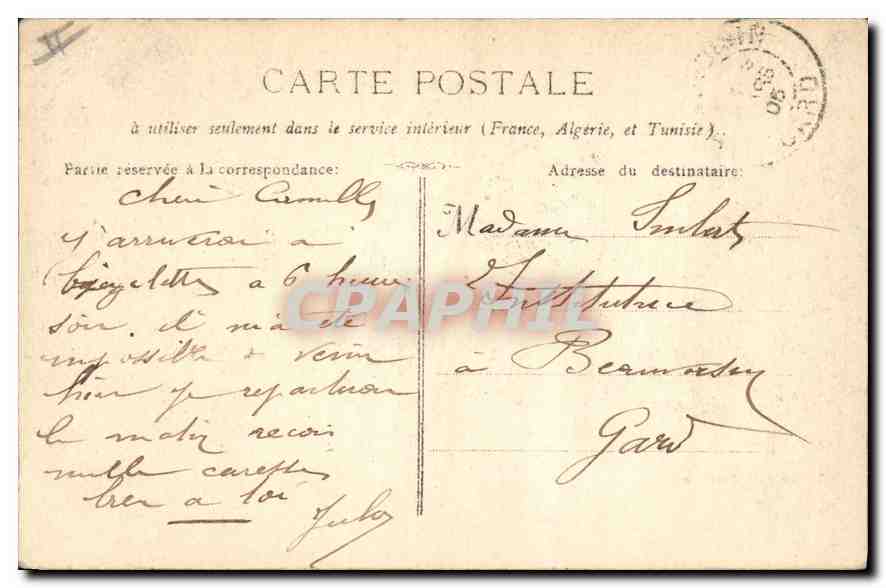 CARTE POSTALE
à utiliser seulement dans le service intérieur (France, Algérie, et Tunisie).
Partie réservée à la correspondance:
cheri Camille
j'arriverai a
bicyclette a 6 heure
soir. il m'a été
impossible de venir
hier je repartirai
le matin recois
mille caresses
bien a toi
Jules
Adresse du destinataire:
Madame Imbert
Institutrice
à
Gard
GARD
05
CPAPHIL